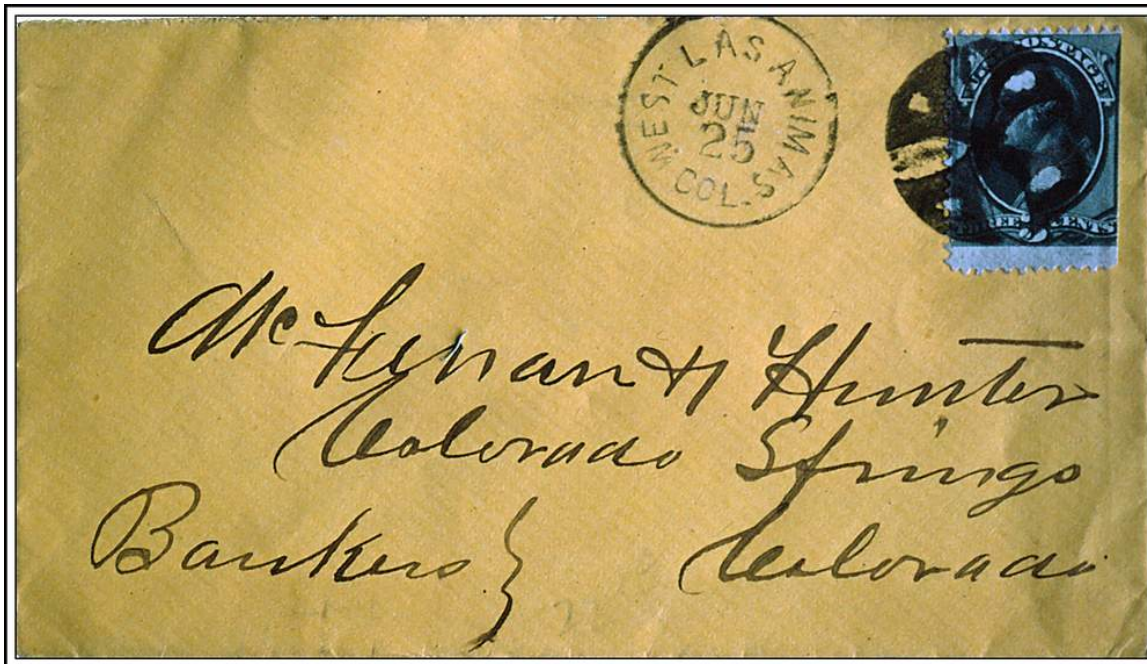 WEST LAS ANIMAS
JUN
25
COL.
U.S. POSTAGE
THREE 3 CENTS
Mc Fenan & Hunter
Colorado Springs
Bankers Colorado